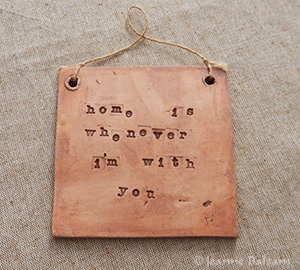 home is
whenever
i'm with
you
© Jeanne Balsam